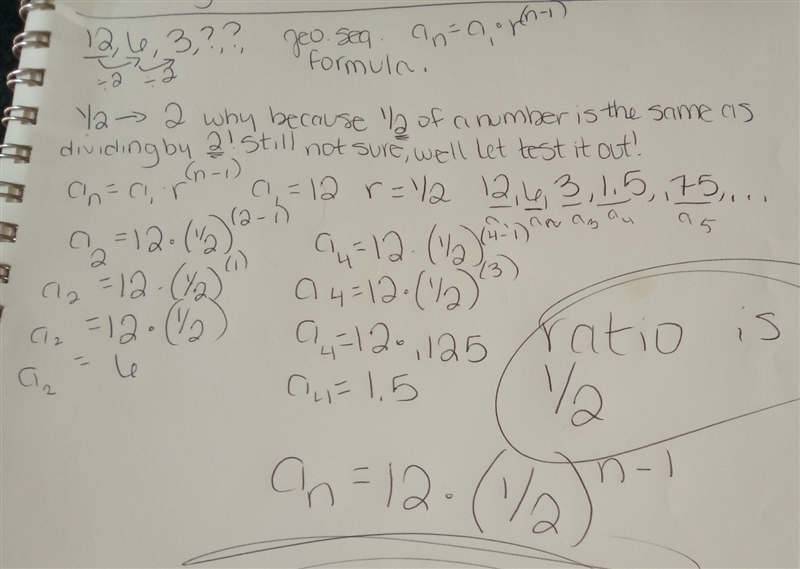 12, 6, 3, ?, ?, geo. seq. aₙ = a₁ · r⁽ⁿ⁻¹⁾
÷2 ÷2 formula.
1/2 → 2 why because 1/2 of a number is the same as
dividing by 2! Still not sure, well let test it out!
aₙ = a₁ · r⁽ⁿ⁻¹⁾ a₁ = 12 r = 1/2 12, 6, 3, 1.5, .75, ...
a₁ a₂ a₃ a₄ a₅
a₂ = 12 · (1/2)⁽²⁻¹⁾ a₄ = 12 · (1/2)⁽⁴⁻¹⁾
a₂ = 12 · (1/2)⁽¹⁾ a₄ = 12 · (1/2)⁽³⁾
a₂ = 12 · (1/2) a₄ = 12 · .125
a₂ = 6 a₄ = 1.5
ratio is
1/2
aₙ = 12 · (1/2)ⁿ⁻¹